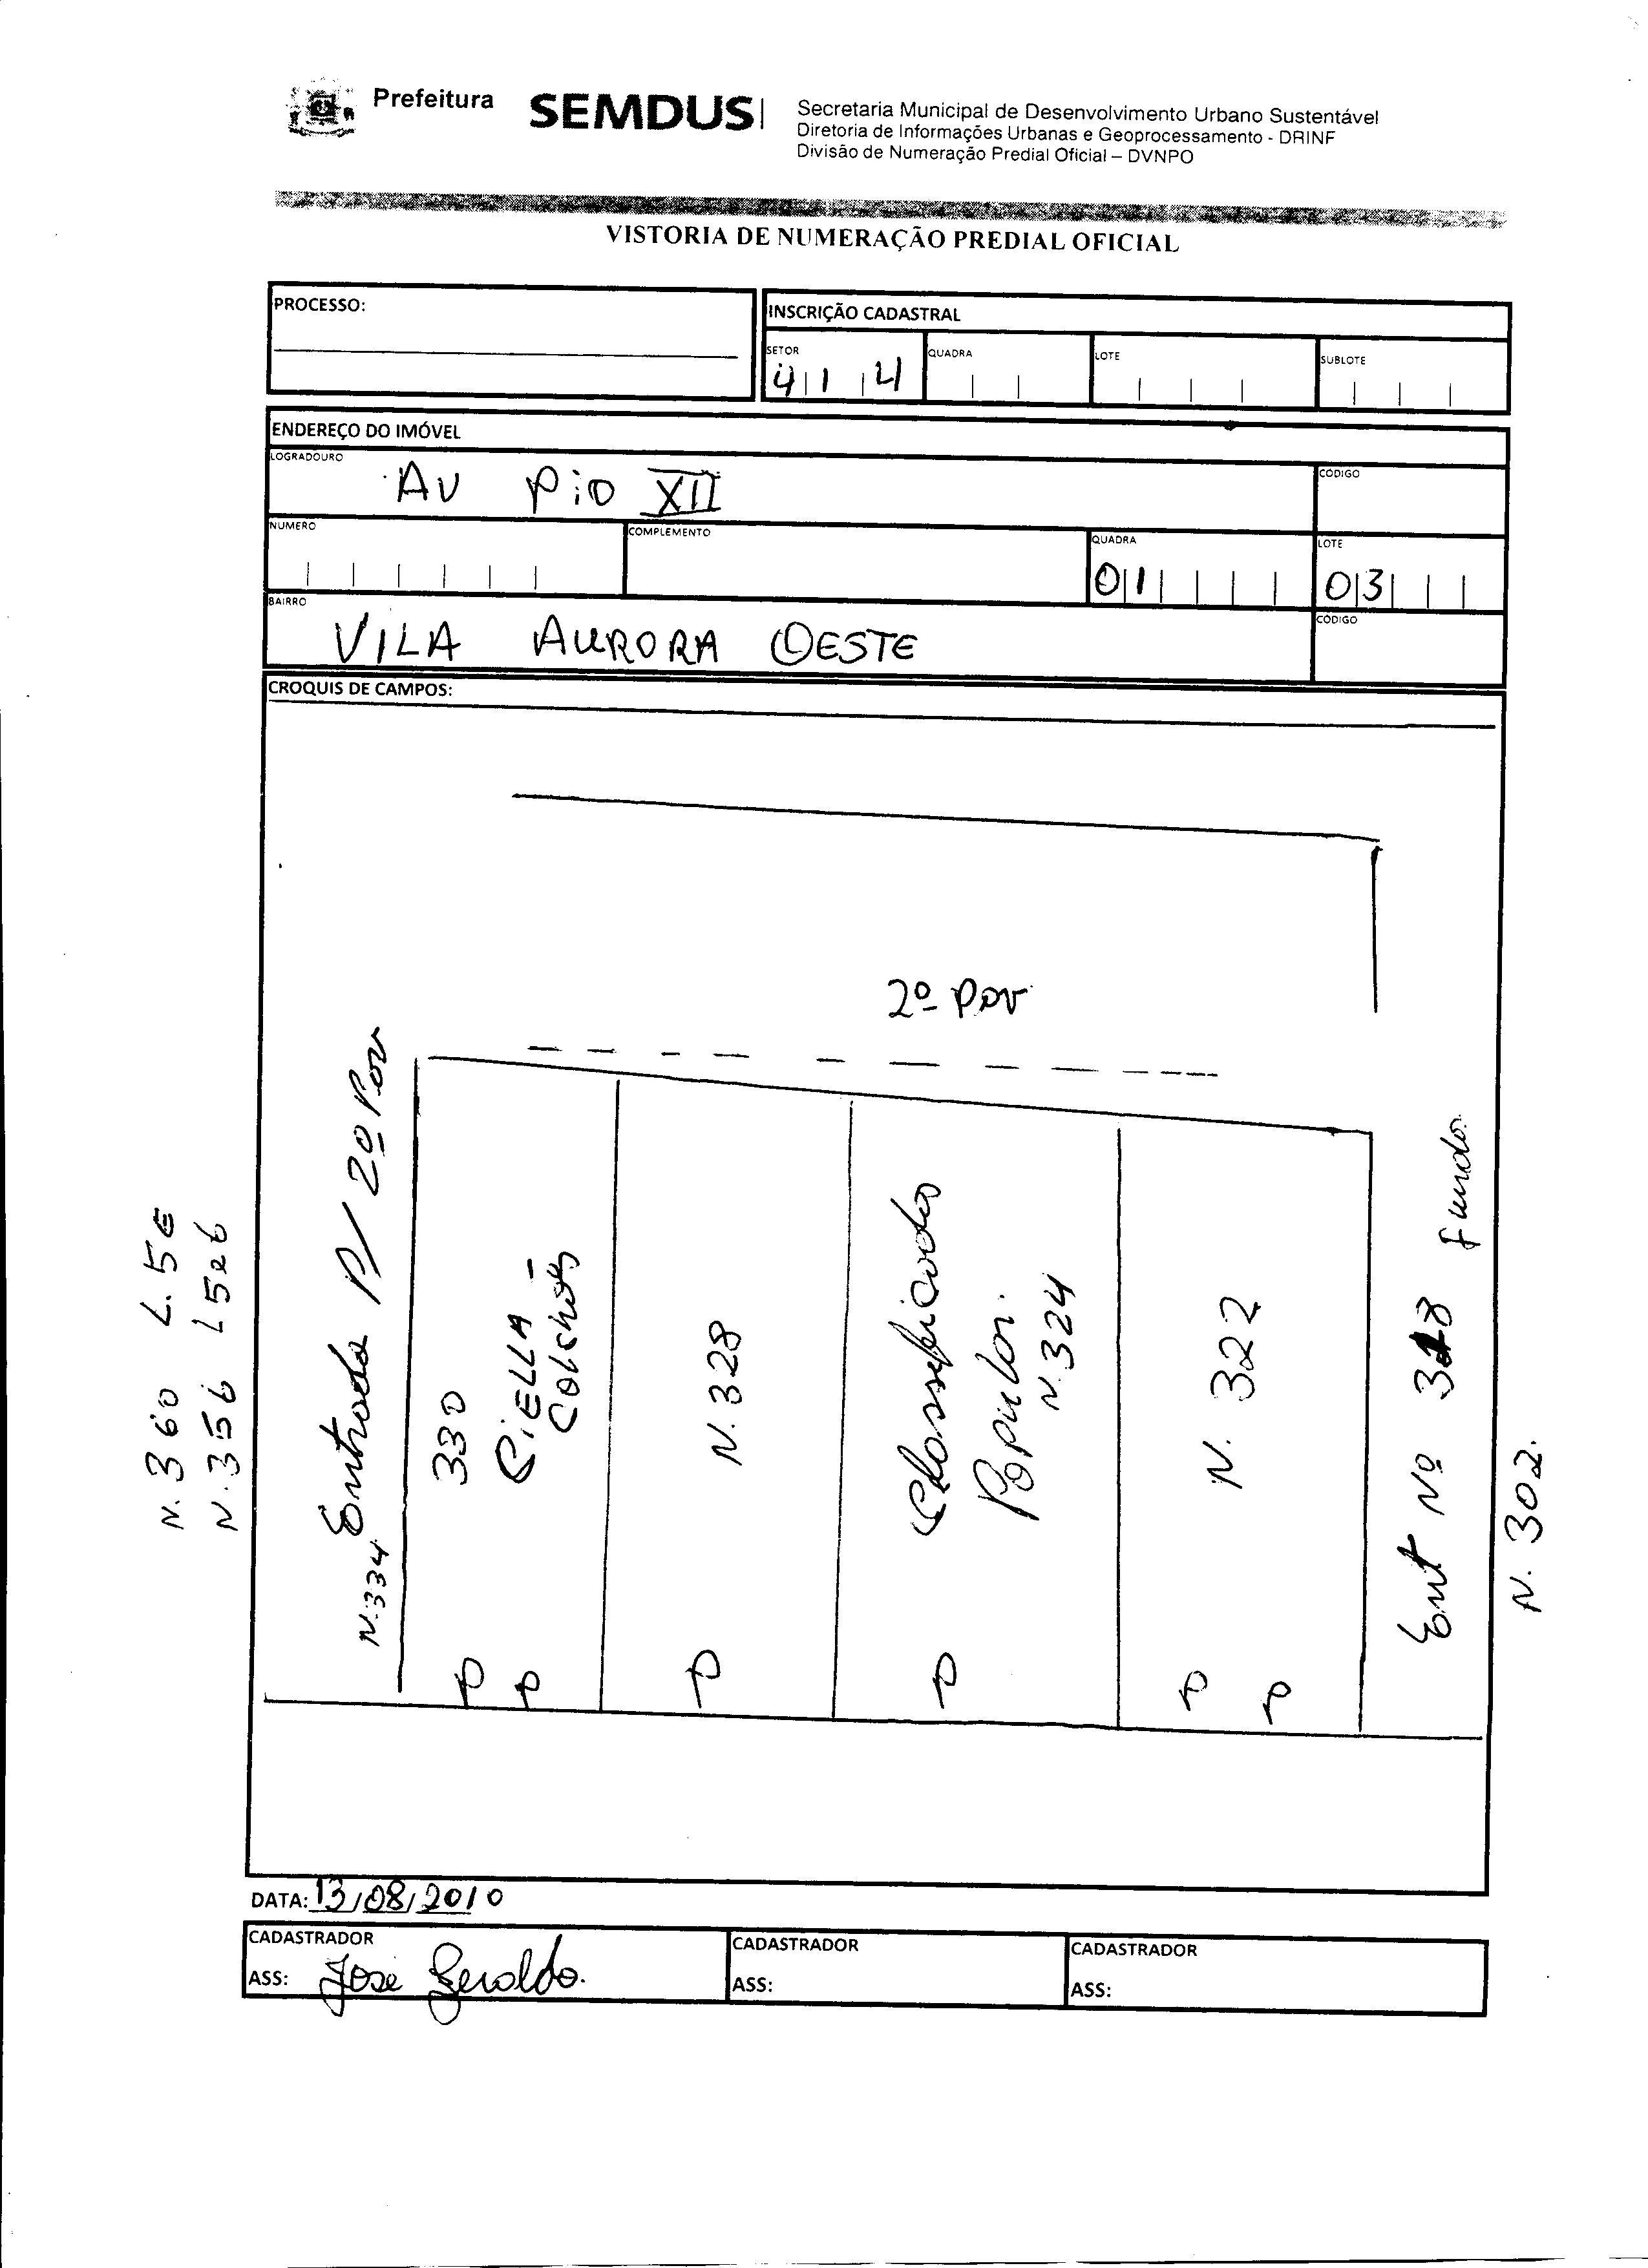 Prefeitura
SEMDUS
Secretaria Municipal de Desenvolvimento Urbano Sustentável
Diretoria de Informações Urbanas e Geoprocessamento - DRINF
Divisão de Numeração Predial Oficial – DVNPO
VISTORIA DE NUMERAÇÃO PREDIAL OFICIAL
PROCESSO:
INSCRIÇÃO CADASTRAL
SETOR
QUADRA
LOTE
SUBLOTE
4 1 4
ENDEREÇO DO IMÓVEL
LOGRADOURO
CÓDIGO
AV PIO XII
NUMERO
COMPLEMENTO
QUADRA
LOTE
01
03
BAIRRO
CÓDIGO
VILA AURORA OESTE
CROQUIS DE CAMPOS:
2º Pav
N. 360 L. 5E
N. 356 L 5e6
N.334 Entrada P/ 2º Pav
330
N. 328
Classificados
Popular
N. 324
N. 322
Ent Nº
fundo
N. 302.
DATA: 13/08/2010
CADASTRADOR
ASS: Jose Geraldo.
CADASTRADOR
ASS:
CADASTRADOR
ASS: